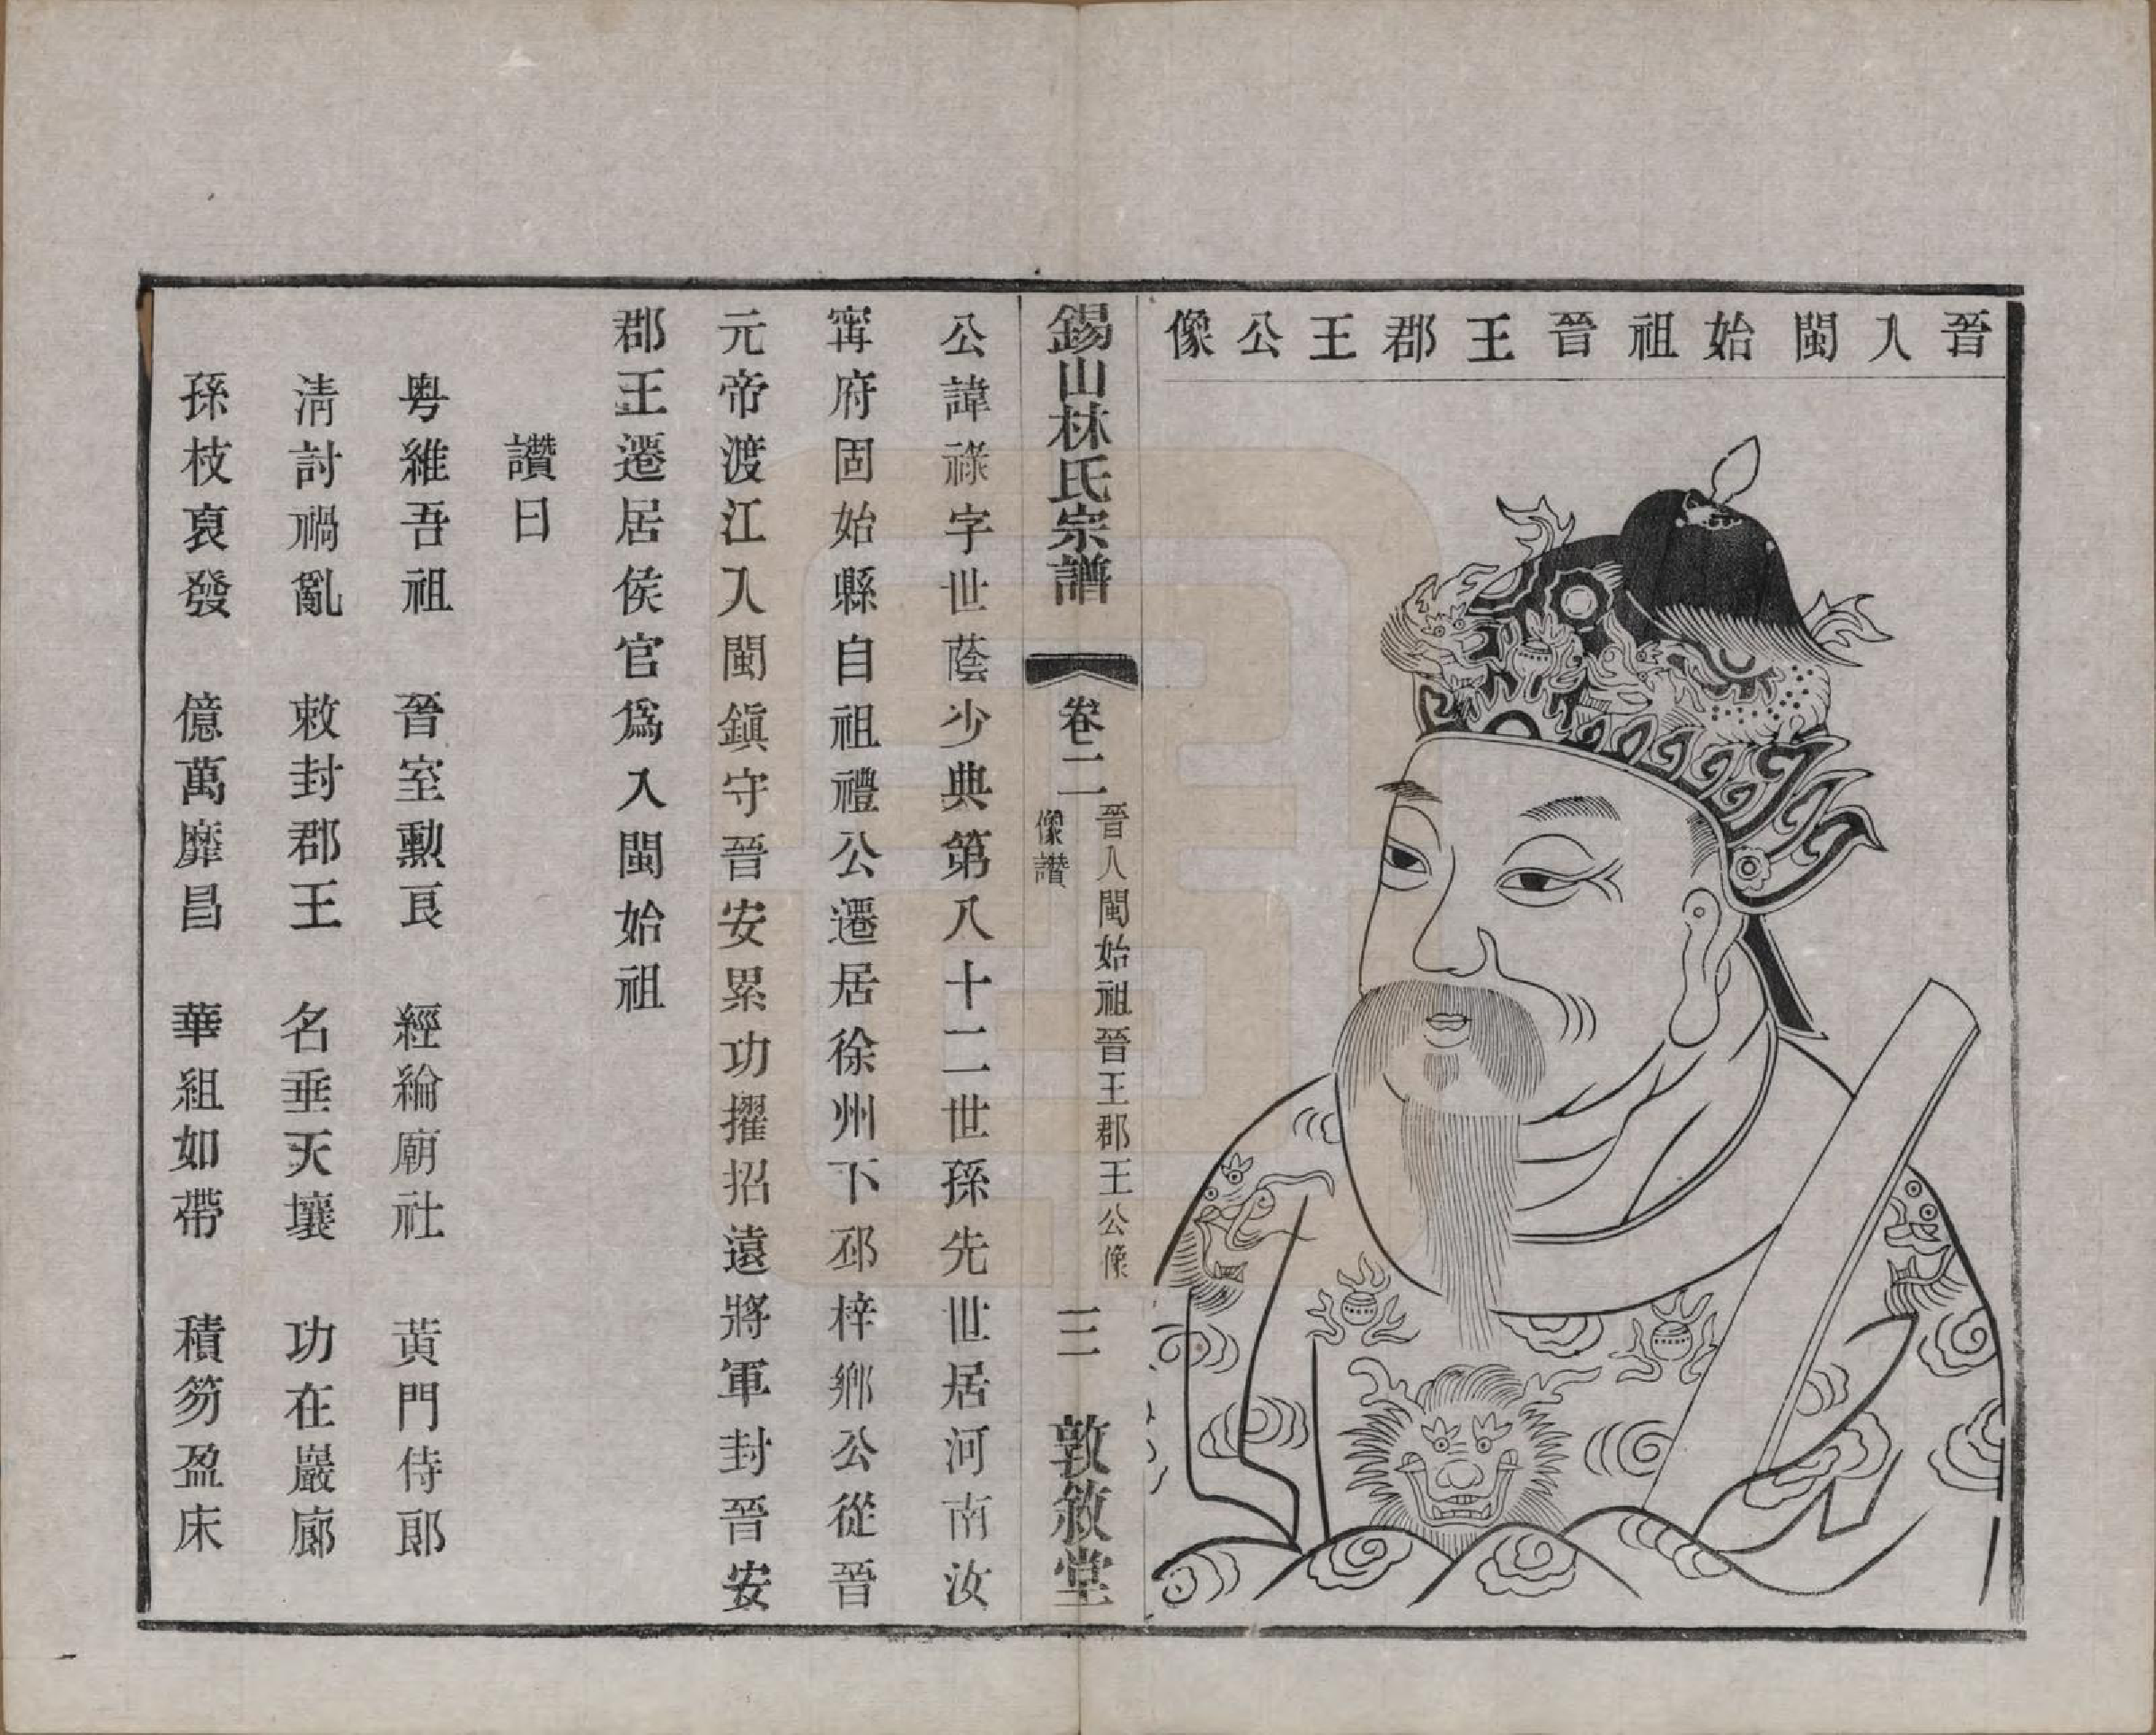 晉入閩始祖晉王郡王公像
錫山林氏宗譜
卷二
晉入閩始祖晉王郡王公像
像讚
三
敦敘堂
公諱祿字世蔭少典第八十二世孫先世居河南汝
甯府固始縣自祖禮公遷居徐州下邳梓鄉公從晉
元帝渡江入閩鎭守晉安累功擢招遠將軍封晉安
郡王遷居侯官爲入閩始祖
讚曰
粤維吾祖 晉室勳良 經綸廟社 黃門侍郎
淸討禍亂 敕封郡王 名垂天壤 功在巖廊
孫枝裒發 億萬靡昌 華組如帶 積笏盈床